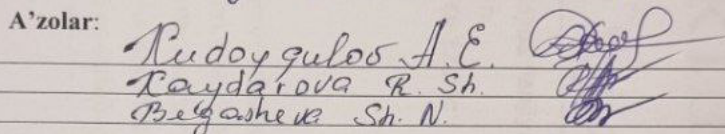 A’zolar:
Xudoyqulov A. E.
Xaydarova R. Sh.
Begasheva Sh. N.